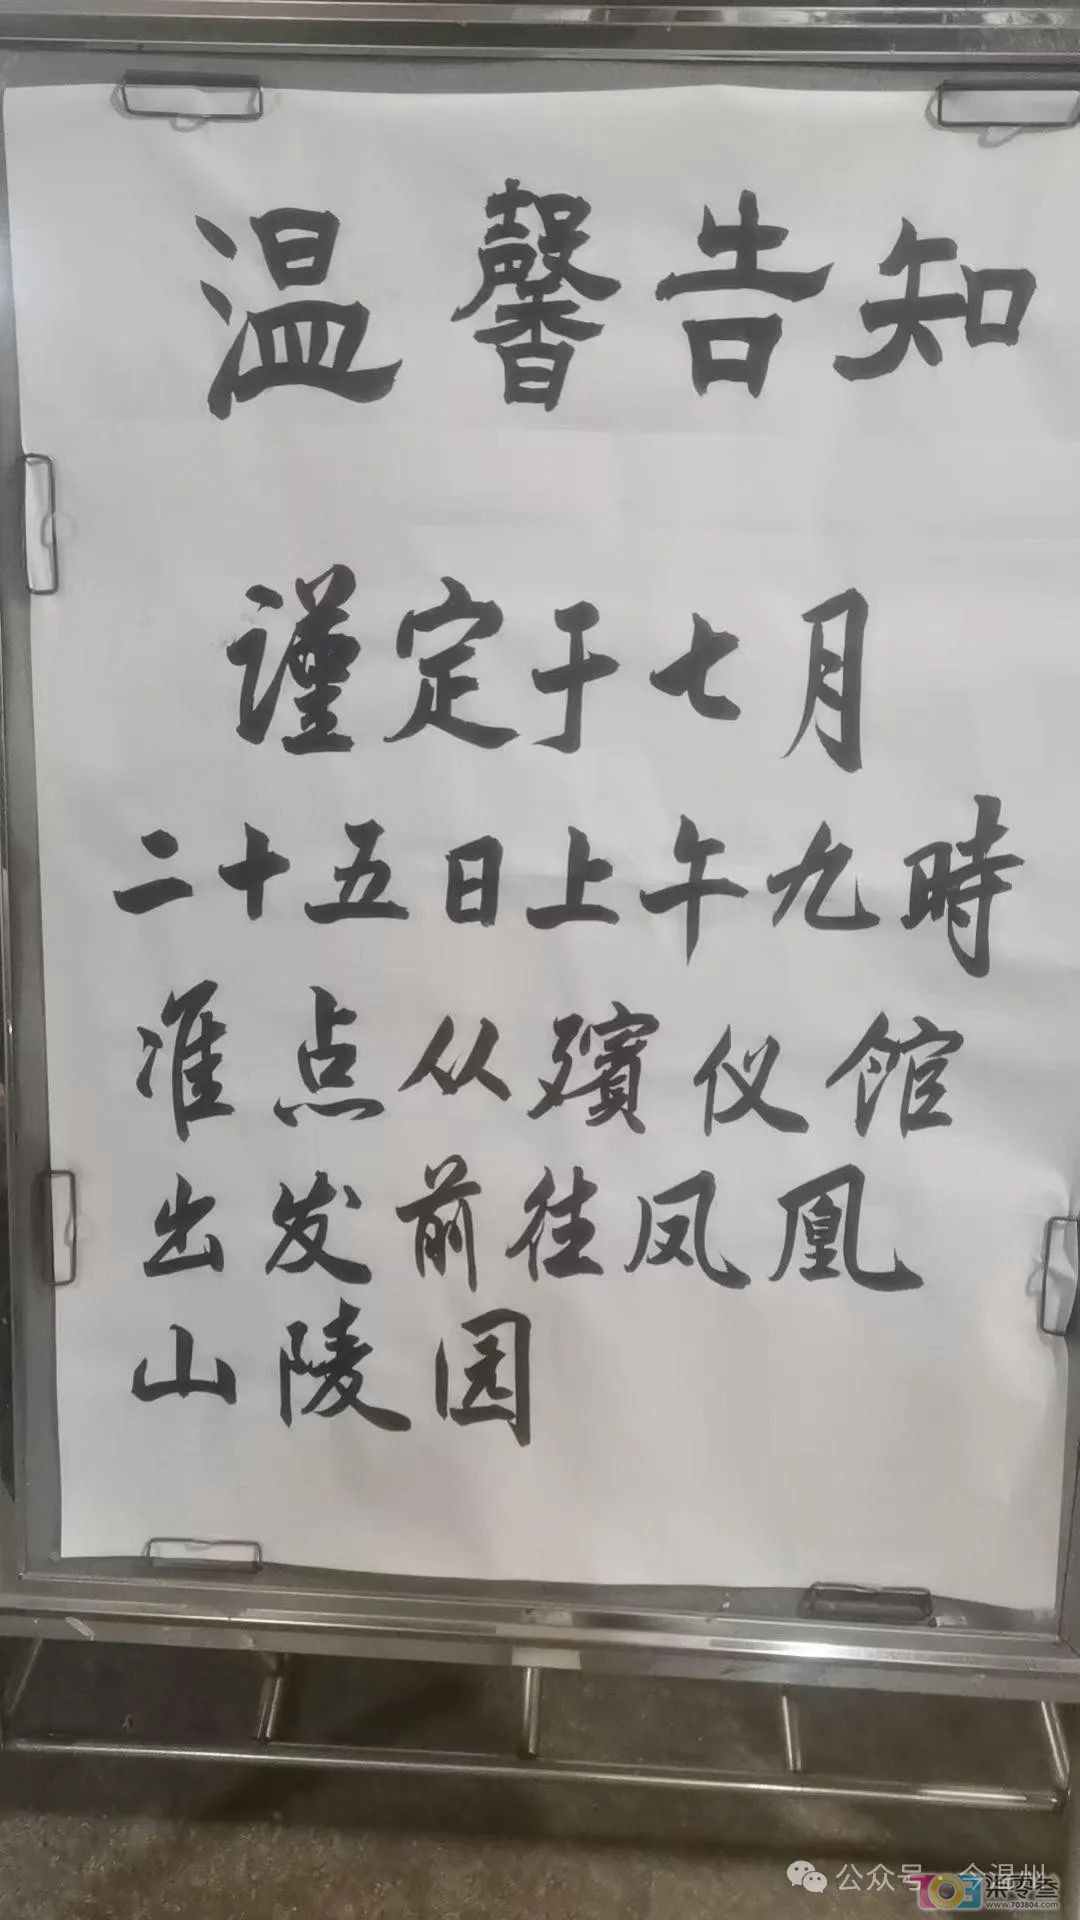 温馨告知
谨定于七月
二十五日上午九時
准点从殯仪馆
出发前往凤凰
山陵园
公众号 今温州
703 柒零叁
www.703804.com